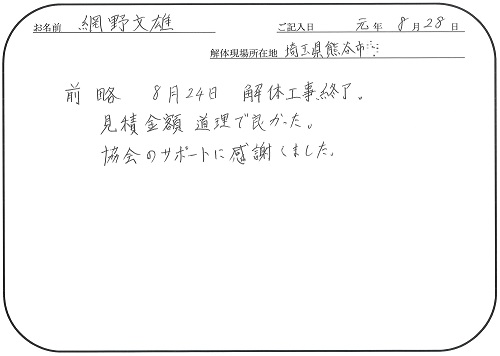 お名前 網野文雄 ご記入日 元年 8月 28日
解体現場所在地 埼玉県熊谷市
前略 8月24日 解体工事終了。
見積金額 道理で良かった。
協会のサポートに感謝しました。